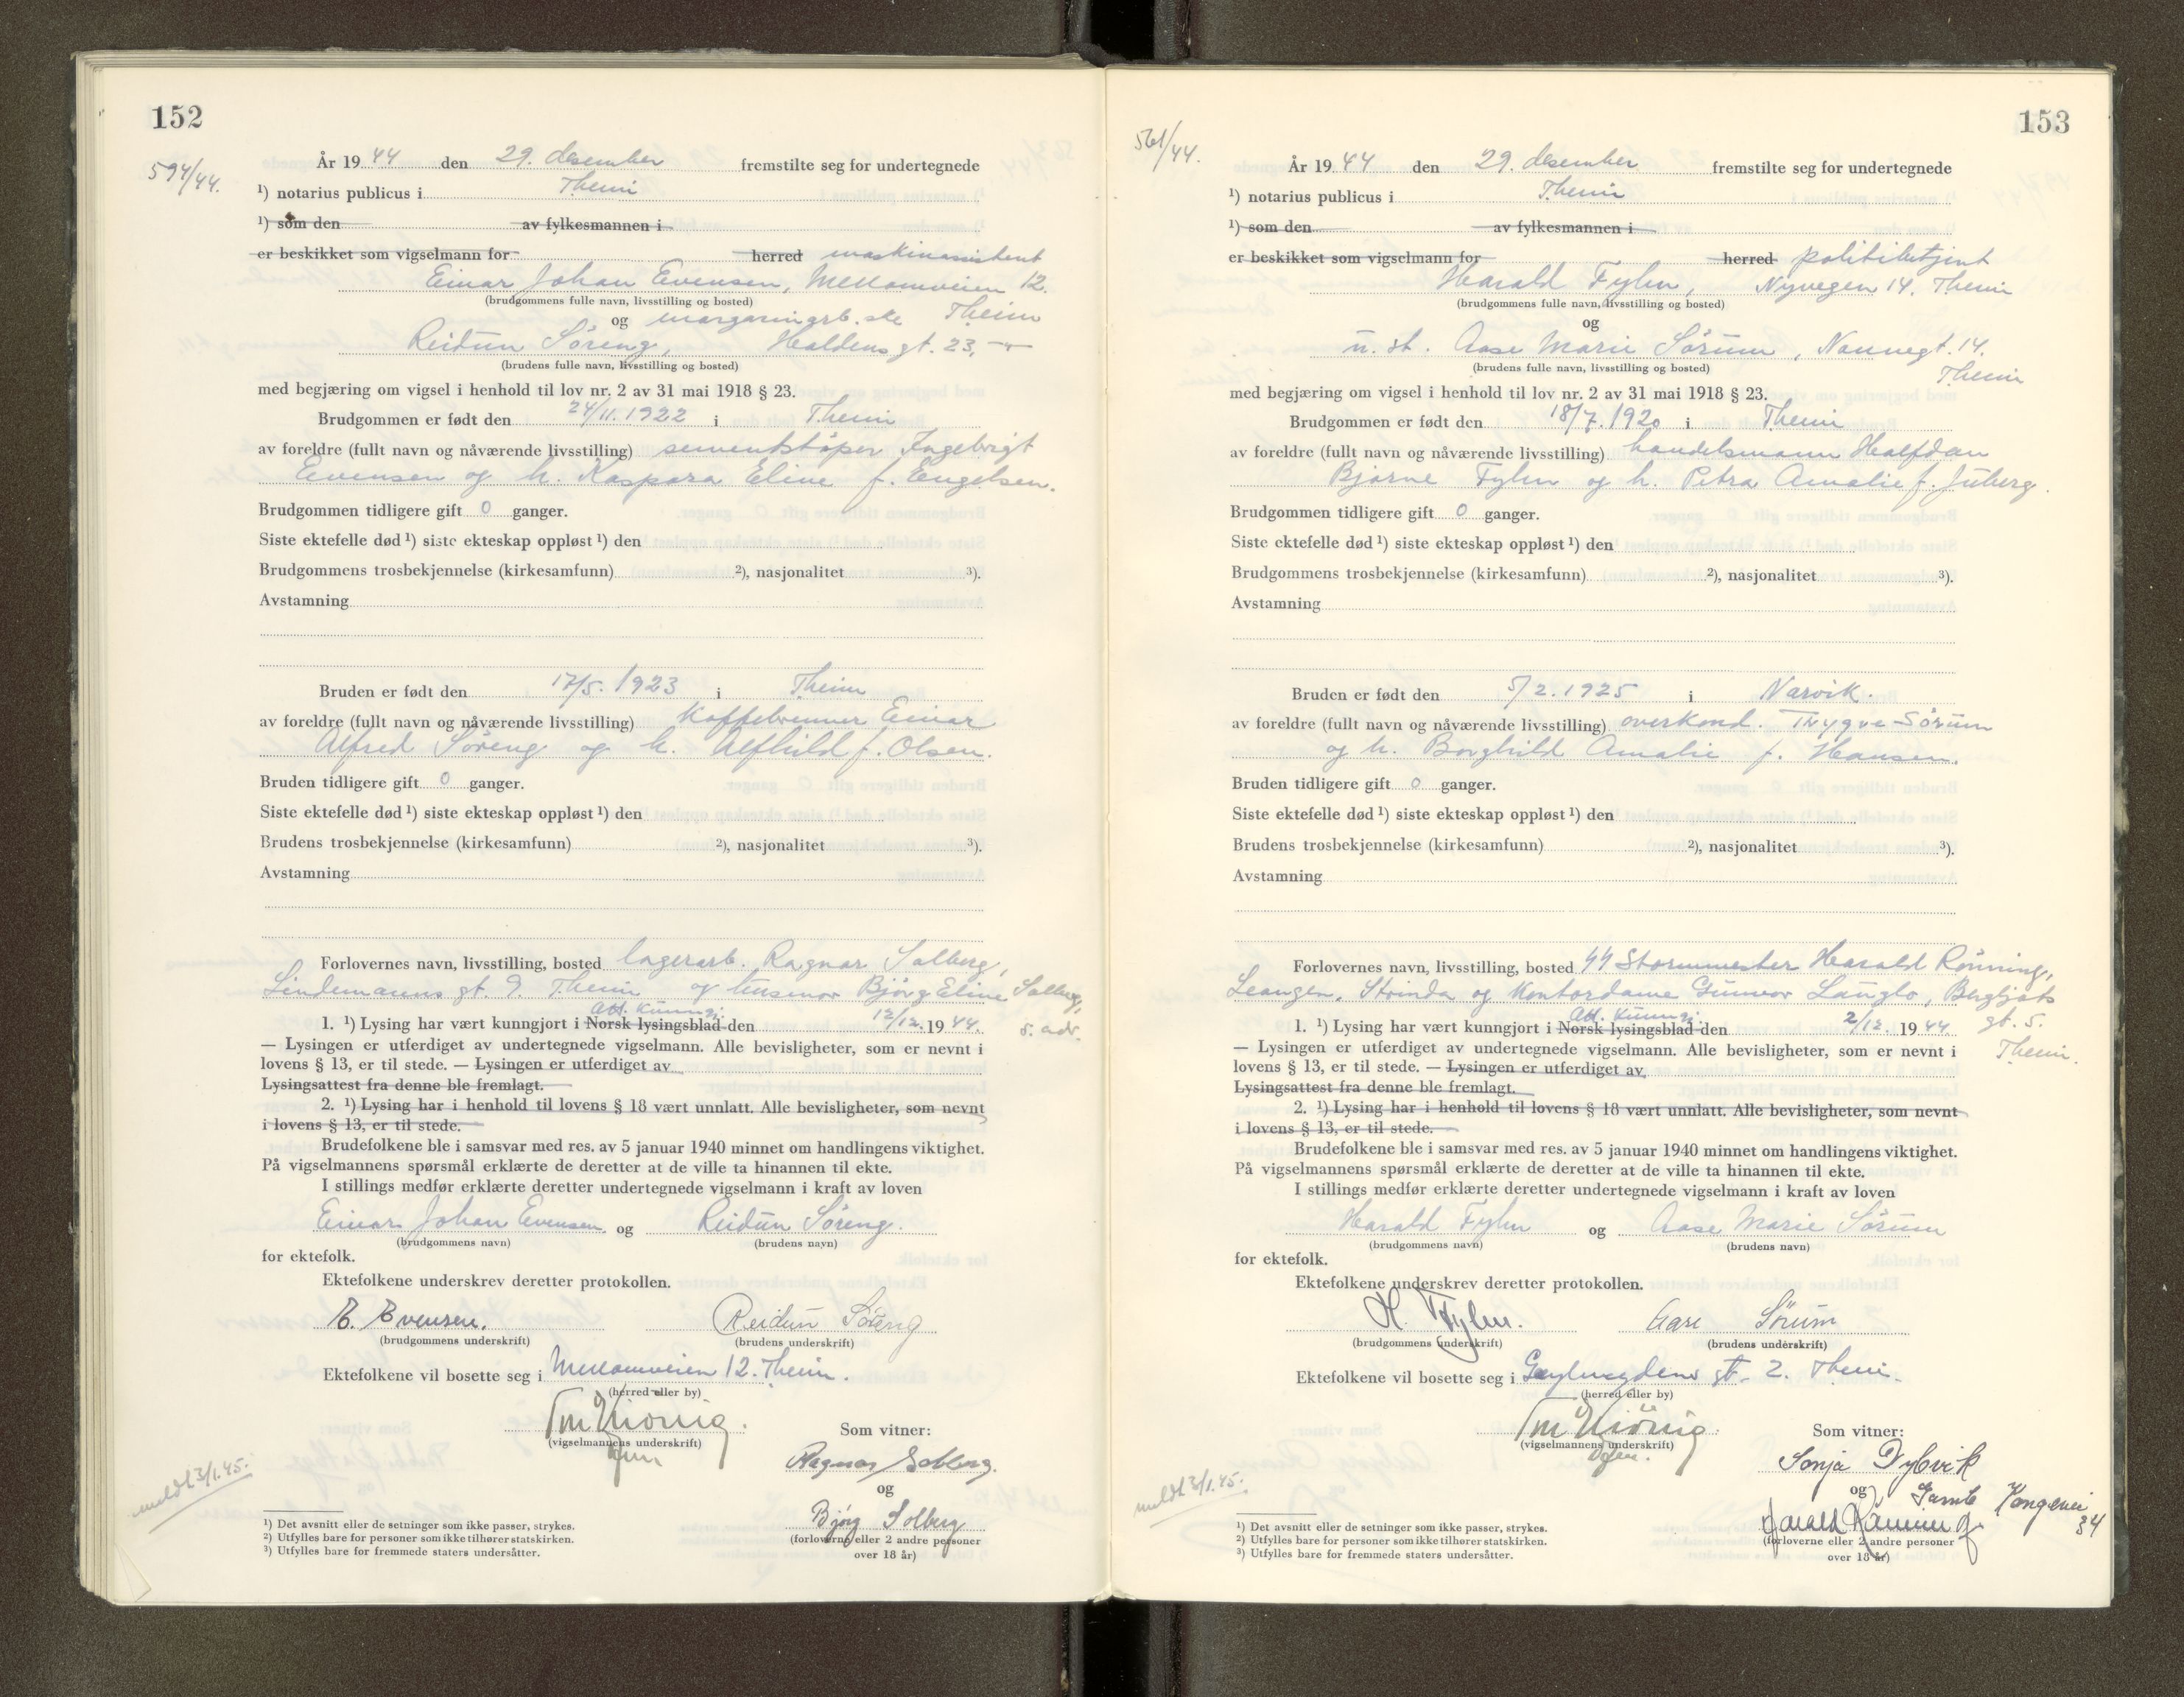 152
594/44.
År 1944 den 29. desember fremstilte seg for undertegnede
¹) notarius publicus i Theim
¹) som den av fylkesmannen i
er beskikket som vigselmann for herred maskinassistent
Einar Johan Evensen, Mellomveien 12.
(brudgommens fulle navn, livsstilling og bosted) Theim
og margarinarb.ske
Reidun Søreng, Haldens gt. 23, —"—
(brudens fulle navn, livsstilling og bosted)
med begjæring om vigsel i henhold til lov nr. 2 av 31 mai 1918 § 23.
Brudgommen er født den 24/11.1922 i Theim
av foreldre (fullt navn og nåværende livsstilling) sementstøper Ingebrigt
Evensen og h. Kaspara Eline f. Engelsen.
Brudgommen tidligere gift 0 ganger.
Siste ektefelle død ¹) siste ekteskap oppløst ¹) den
Brudgommens trosbekjennelse (kirkesamfunn) ²), nasjonalitet ³).
Avstamning
Bruden er født den 17/5.1923 i Theim
av foreldre (fullt navn og nåværende livsstilling) Kaffebrenner Einar
Alfred Søreng og h. Alfhild f. Olsen.
Bruden tidligere gift 0 ganger.
Siste ektefelle død ¹) siste ekteskap oppløst ¹) den
Brudens trosbekjennelse (kirkesamfunn) ²), nasjonalitet ³).
Avstamning
Forlovernes navn, livsstilling, bosted lagerarb. Ragnar Solberg,
Lindemanns gt. 9. Theim og husmor Bjørg Eline Solberg,
s. adr.
Att. kunngj.
1. ¹) Lysing har vært kunngjort i Norsk lysingsblad den 12/12. 1944.
— Lysingen er utferdiget av undertegnede vigselmann. Alle bevisligheter, som er nevnt i
lovens § 13, er til stede. — Lysingen er utferdiget av
Lysingsattest fra denne ble fremlagt.
2. ¹) Lysing har i henhold til lovens § 18 vært unnlatt. Alle bevisligheter, som nevnt
i lovens § 13, er til stede.
Brudefolkene ble i samsvar med res. av 5 januar 1940 minnet om handlingens viktighet.
På vigselmannens spørsmål erklærte de deretter at de ville ta hinannen til ekte.
I stillings medfør erklærte deretter undertegnede vigselmann i kraft av loven
Einar Johan Evensen og Reidun Søreng.
(brudgommens navn) (brudens navn)
for ektefolk.
Ektefolkene underskrev deretter protokollen.
E. Evensen. Reidun Søreng
(brudgommens underskrift) (brudens underskrift)
Ektefolkene vil bosette seg i Mellomveien 12. Theim.
(herred eller by)
Som vitner:
(vigselmannens underskrift)
Ragnar Solberg.
og
Bjørg Solberg
(forloverne eller 2 andre personer
over 18 år)
meldt 3/1.45.
¹) Det avsnitt eller de setninger som ikke passer, strykes.
²) Utfylles bare for personer som ikke tilhører statskirken.
³) Utfylles bare for fremmede staters undersåtter.
153
561/44.
År 1944 den 29. desember fremstilte seg for undertegnede
¹) notarius publicus i Theim
¹) som den av fylkesmannen i
er beskikket som vigselmann for herred politibetjent
Harald Fylm, Nyvegen 14. Theim
(brudgommens fulle navn, livsstilling og bosted)
og
u. st. Aase Marie Sørum, Nannegt. 14.
(brudens fulle navn, livsstilling og bosted) Theim
med begjæring om vigsel i henhold til lov nr. 2 av 31 mai 1918 § 23.
Brudgommen er født den 18/7.1920 i Theim
av foreldre (fullt navn og nåværende livsstilling) handelsmann Halfdan
Bjarne Fylm og h. Petra Amalie f. Juberg.
Brudgommen tidligere gift 0 ganger.
Siste ektefelle død ¹) siste ekteskap oppløst ¹) den
Brudgommens trosbekjennelse (kirkesamfunn) ²), nasjonalitet ³).
Avstamning
Bruden er født den 5/2.1925 i Narvik.
av foreldre (fullt navn og nåværende livsstilling) overkond. Trygve Sørum
og h. Borghild Amalie f. Hansen.
Bruden tidligere gift 0 ganger.
Siste ektefelle død ¹) siste ekteskap oppløst ¹) den
Brudens trosbekjennelse (kirkesamfunn) ²), nasjonalitet ³).
Avstamning
Forlovernes navn, livsstilling, bosted SS Stormmester Harald Rønning,
Leangen, Strinda og Kontordame Gunvor Langlo, Bergljots
gt. 5.
Theim.
Att. kunngj.
1. ¹) Lysing har vært kunngjort i Norsk lysingsblad den 2/12. 1944
— Lysingen er utferdiget av undertegnede vigselmann. Alle bevisligheter, som er nevnt i
lovens § 13, er til stede. — Lysingen er utferdiget av
Lysingsattest fra denne ble fremlagt.
2. ¹) Lysing har i henhold til lovens § 18 vært unnlatt. Alle bevisligheter, som nevnt
i lovens § 13, er til stede.
Brudefolkene ble i samsvar med res. av 5 januar 1940 minnet om handlingens viktighet.
På vigselmannens spørsmål erklærte de deretter at de ville ta hinannen til ekte.
I stillings medfør erklærte deretter undertegnede vigselmann i kraft av loven
Harald Fylm og Aase Marie Sørum
(brudgommens navn) (brudens navn)
for ektefolk.
Ektefolkene underskrev deretter protokollen.
H. Fylm. Aase Sørum
(brudgommens underskrift) (brudens underskrift)
Ektefolkene vil bosette seg i gt. 2. Theim.
(herred eller by)
Som vitner:
(vigselmannens underskrift)
Sonja Dybvik
og Gamle Kongevei
34
Harald Rønning
(forloverne eller 2 andre personer
over 18 år)
meldt 3/1.45.
¹) Det avsnitt eller de setninger som ikke passer, strykes.
²) Utfylles bare for personer som ikke tilhører statskirken.
³) Utfylles bare for fremmede staters undersåtter.